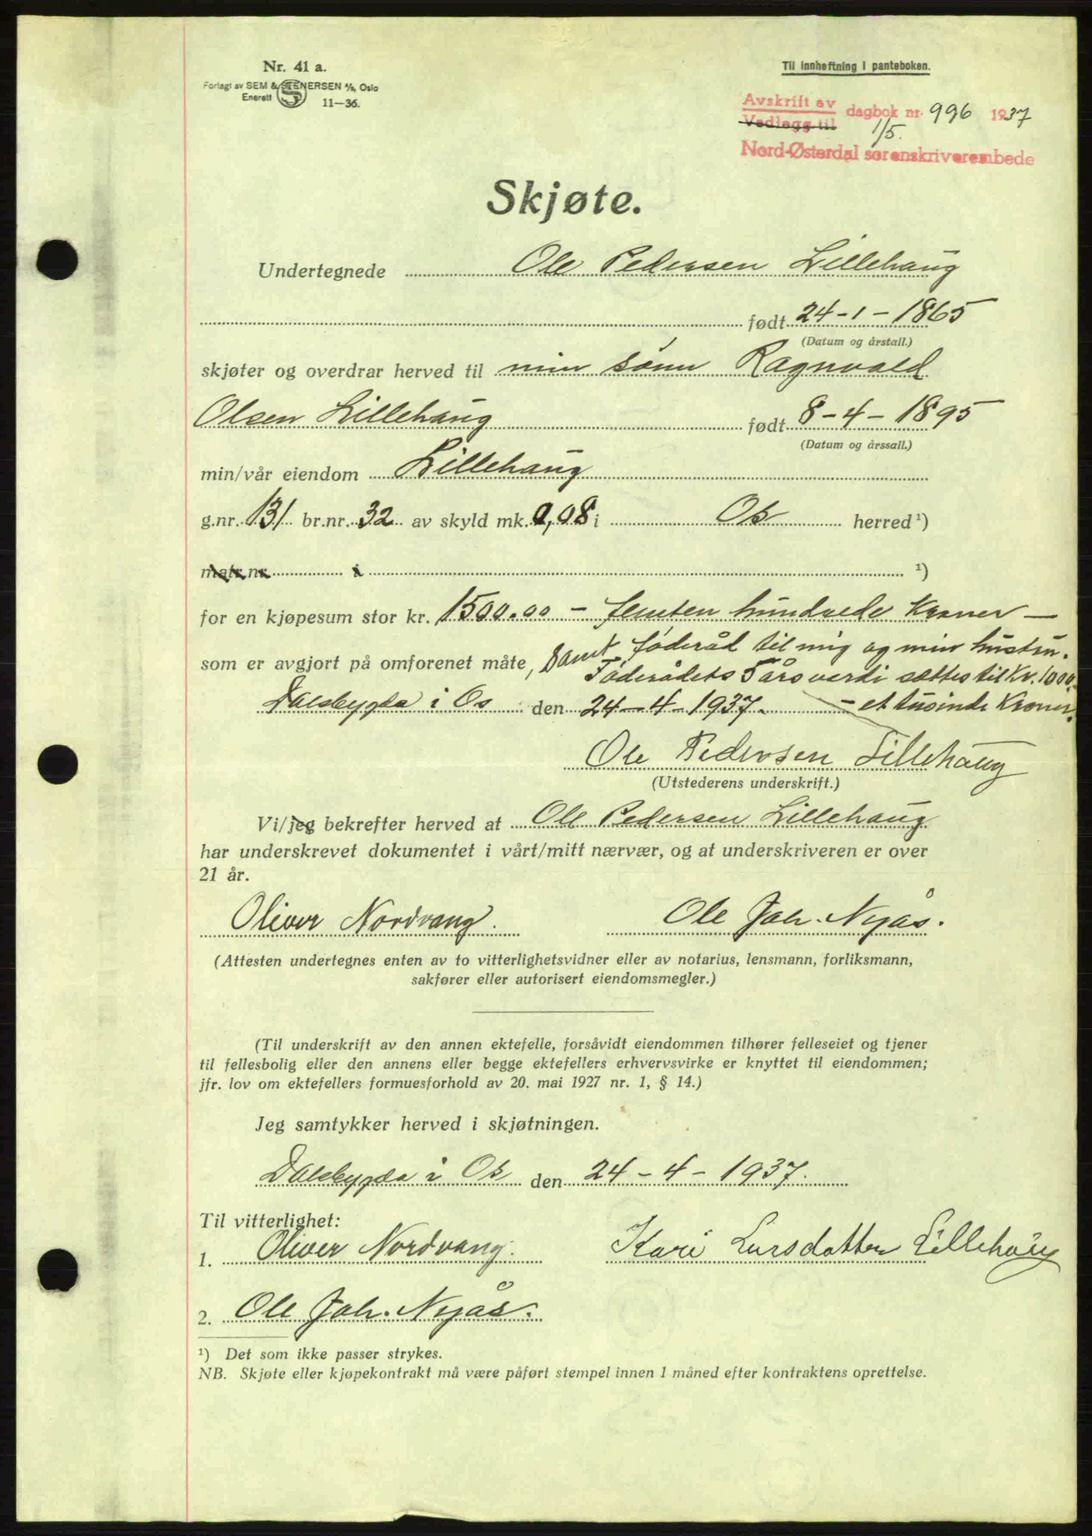 Nr. 41 a.
Forlagt av SEM & STENERSEN A/S, Oslo
Enerett S 11-36.
Til innheftning i panteboken.
Avskrift av
Vedlegg til dagbok nr. 996 1937
1/5.
Nord-Østerdal sorenskriverembede
Skjøte.
Undertegnede Ole Pedersen Lillehaug
født 24-1-1865
(Datum og årstall.)
skjøter og overdrar herved til min sønn Ragnvald
Olsen Lillehaug født 8-4-1895
(Datum og årssall.)
min/vår eiendom Lillehaug
g.nr. 131 br.nr. 32 av skyld mk. 0,08 i Os herred ¹)
matr.nr. i ¹)
for en kjøpesum stor kr. 1500.00 - femten hundrede Kroner -
som er avgjort på omforenet måte, samt føderåd til mig og min hustru.
Føderådets 5 års verdi sættes til Kr. 1000.
Dalsbygda i Os den 24-4-1937. - et tusinde Kroner.
Ole Pedersen Lillehaug
(Utstederens underskrift.)
Vi/jeg bekrefter herved at Ole Pedersen Lillehaug
har underskrevet dokumentet i vårt/mitt nærvær, og at underskriveren er over
21 år.
Oliver Nordvang. Ole Joh. Nyås.
(Attesten undertegnes enten av to vitterlighetsvidner eller av notarius, lensmann, forliksmann,
sakfører eller autorisert eiendomsmegler.)
(Til underskrift av den annen ektefelle, forsåvidt eiendommen tilhører felleseiet og tjener
til fellesbolig eller den annens eller begge ektefellers erhvervsvirke er knyttet til eiendommen;
jfr. lov om ektefellers formuesforhold av 20. mai 1927 nr. 1, § 14.)
Jeg samtykker herved i skjøtningen.
Dalsbygda i Os den 24-4-1937.
Til vitterlighet:
1. Oliver Nordvang. Kari Larsdatter Lillehaug
2. Ole Joh. Nyås.
¹) Det som ikke passer strykes.
NB. Skjøte eller kjøpekontrakt må være påført stempel innen 1 måned efter kontraktens oprettelse.